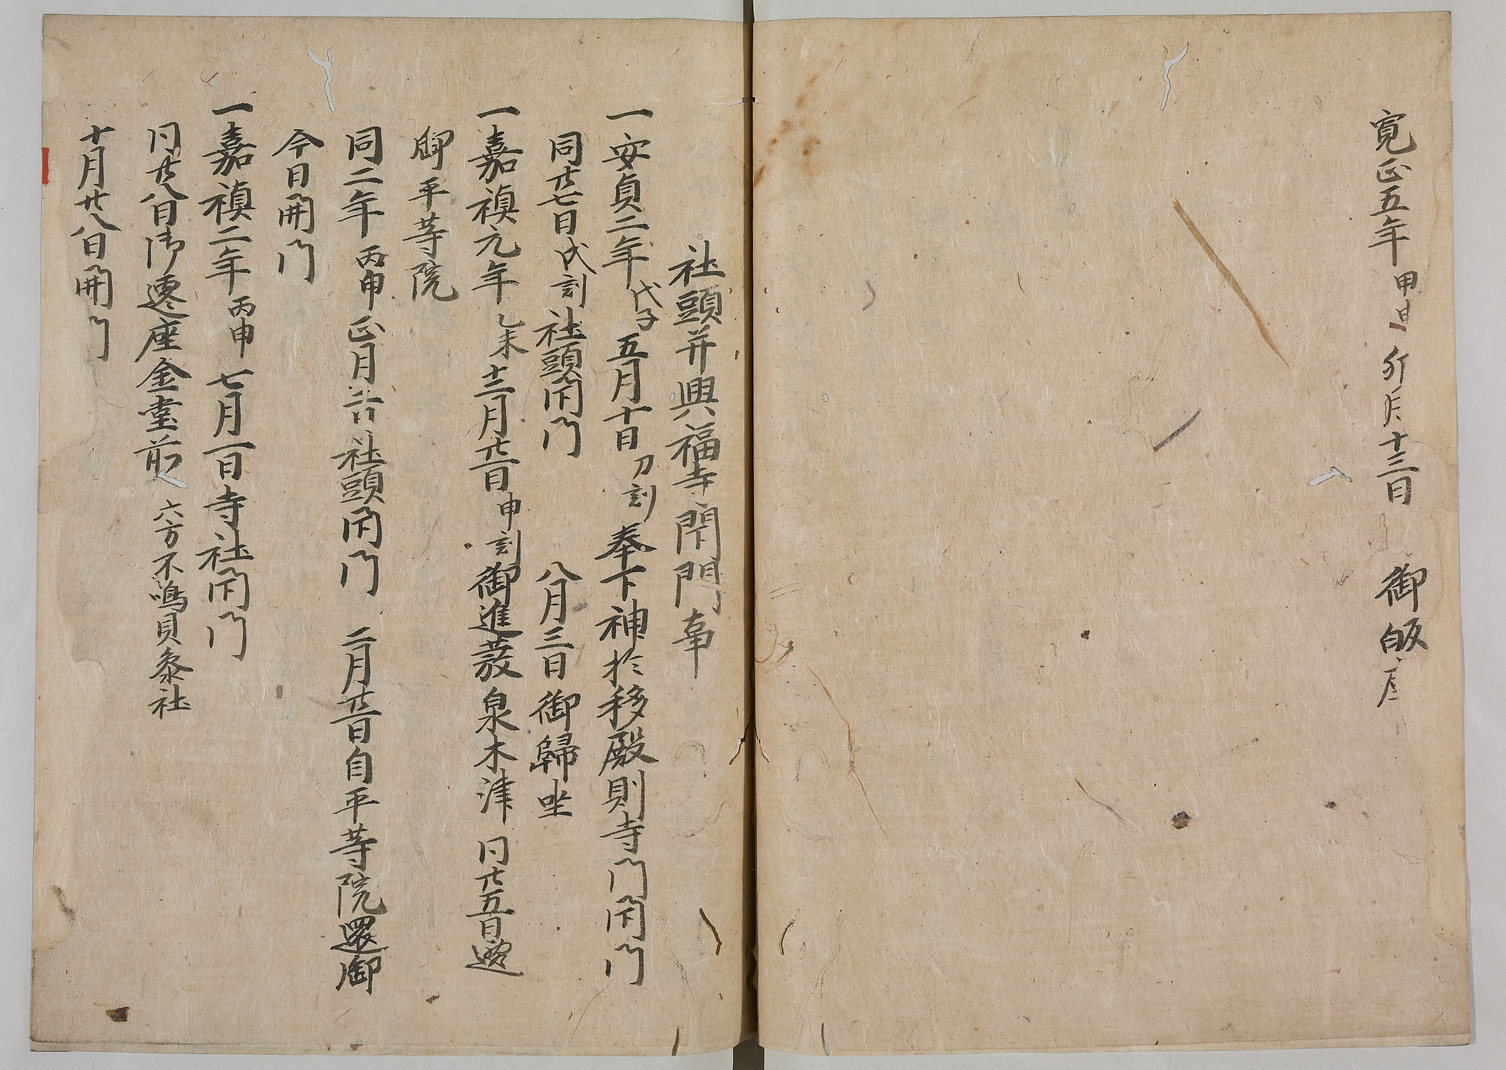 寛正五年甲申 六月十三日 御皈座
社頭并興福寺閇門事
一安貞二年戊子五月十日刀刻奉下神於移殿則寺門閇門
同廿七日戌刻社頭閇門 八月三日御歸坐
一嘉禎元年乙未十二月廿一日申刻御進發泉木津 同廿五日遷
御平等院
同二年丙申正月 社頭閇門 二月廿一日自平等院還御
今日開門
一嘉禎二年丙申七月一日寺社閇門
同廿八日御遷座金堂前 六方不鳴貝参社
十月廿八日開門